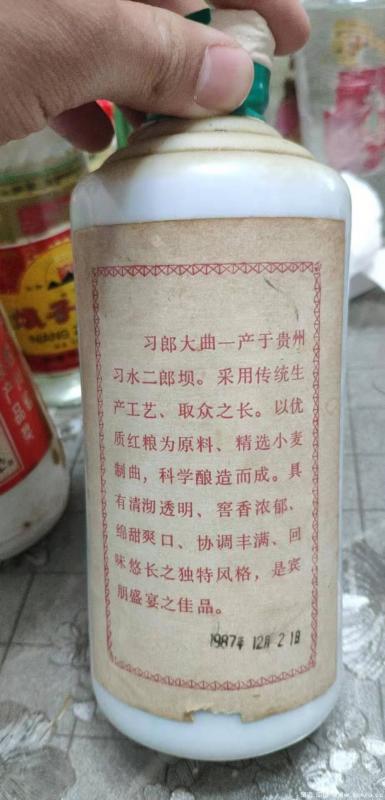 习郎大曲—产于贵州
习水二郎坝。采用传统生
产工艺、取众之长。以优
质红粮为原料、精选小麦
制曲，科学酿造而成。具
有清沏透明、窖香浓郁、
绵甜爽口、协调丰满、回
味悠长之独特风格，是宾
朋盛宴之佳品。
1987年 12月 21日